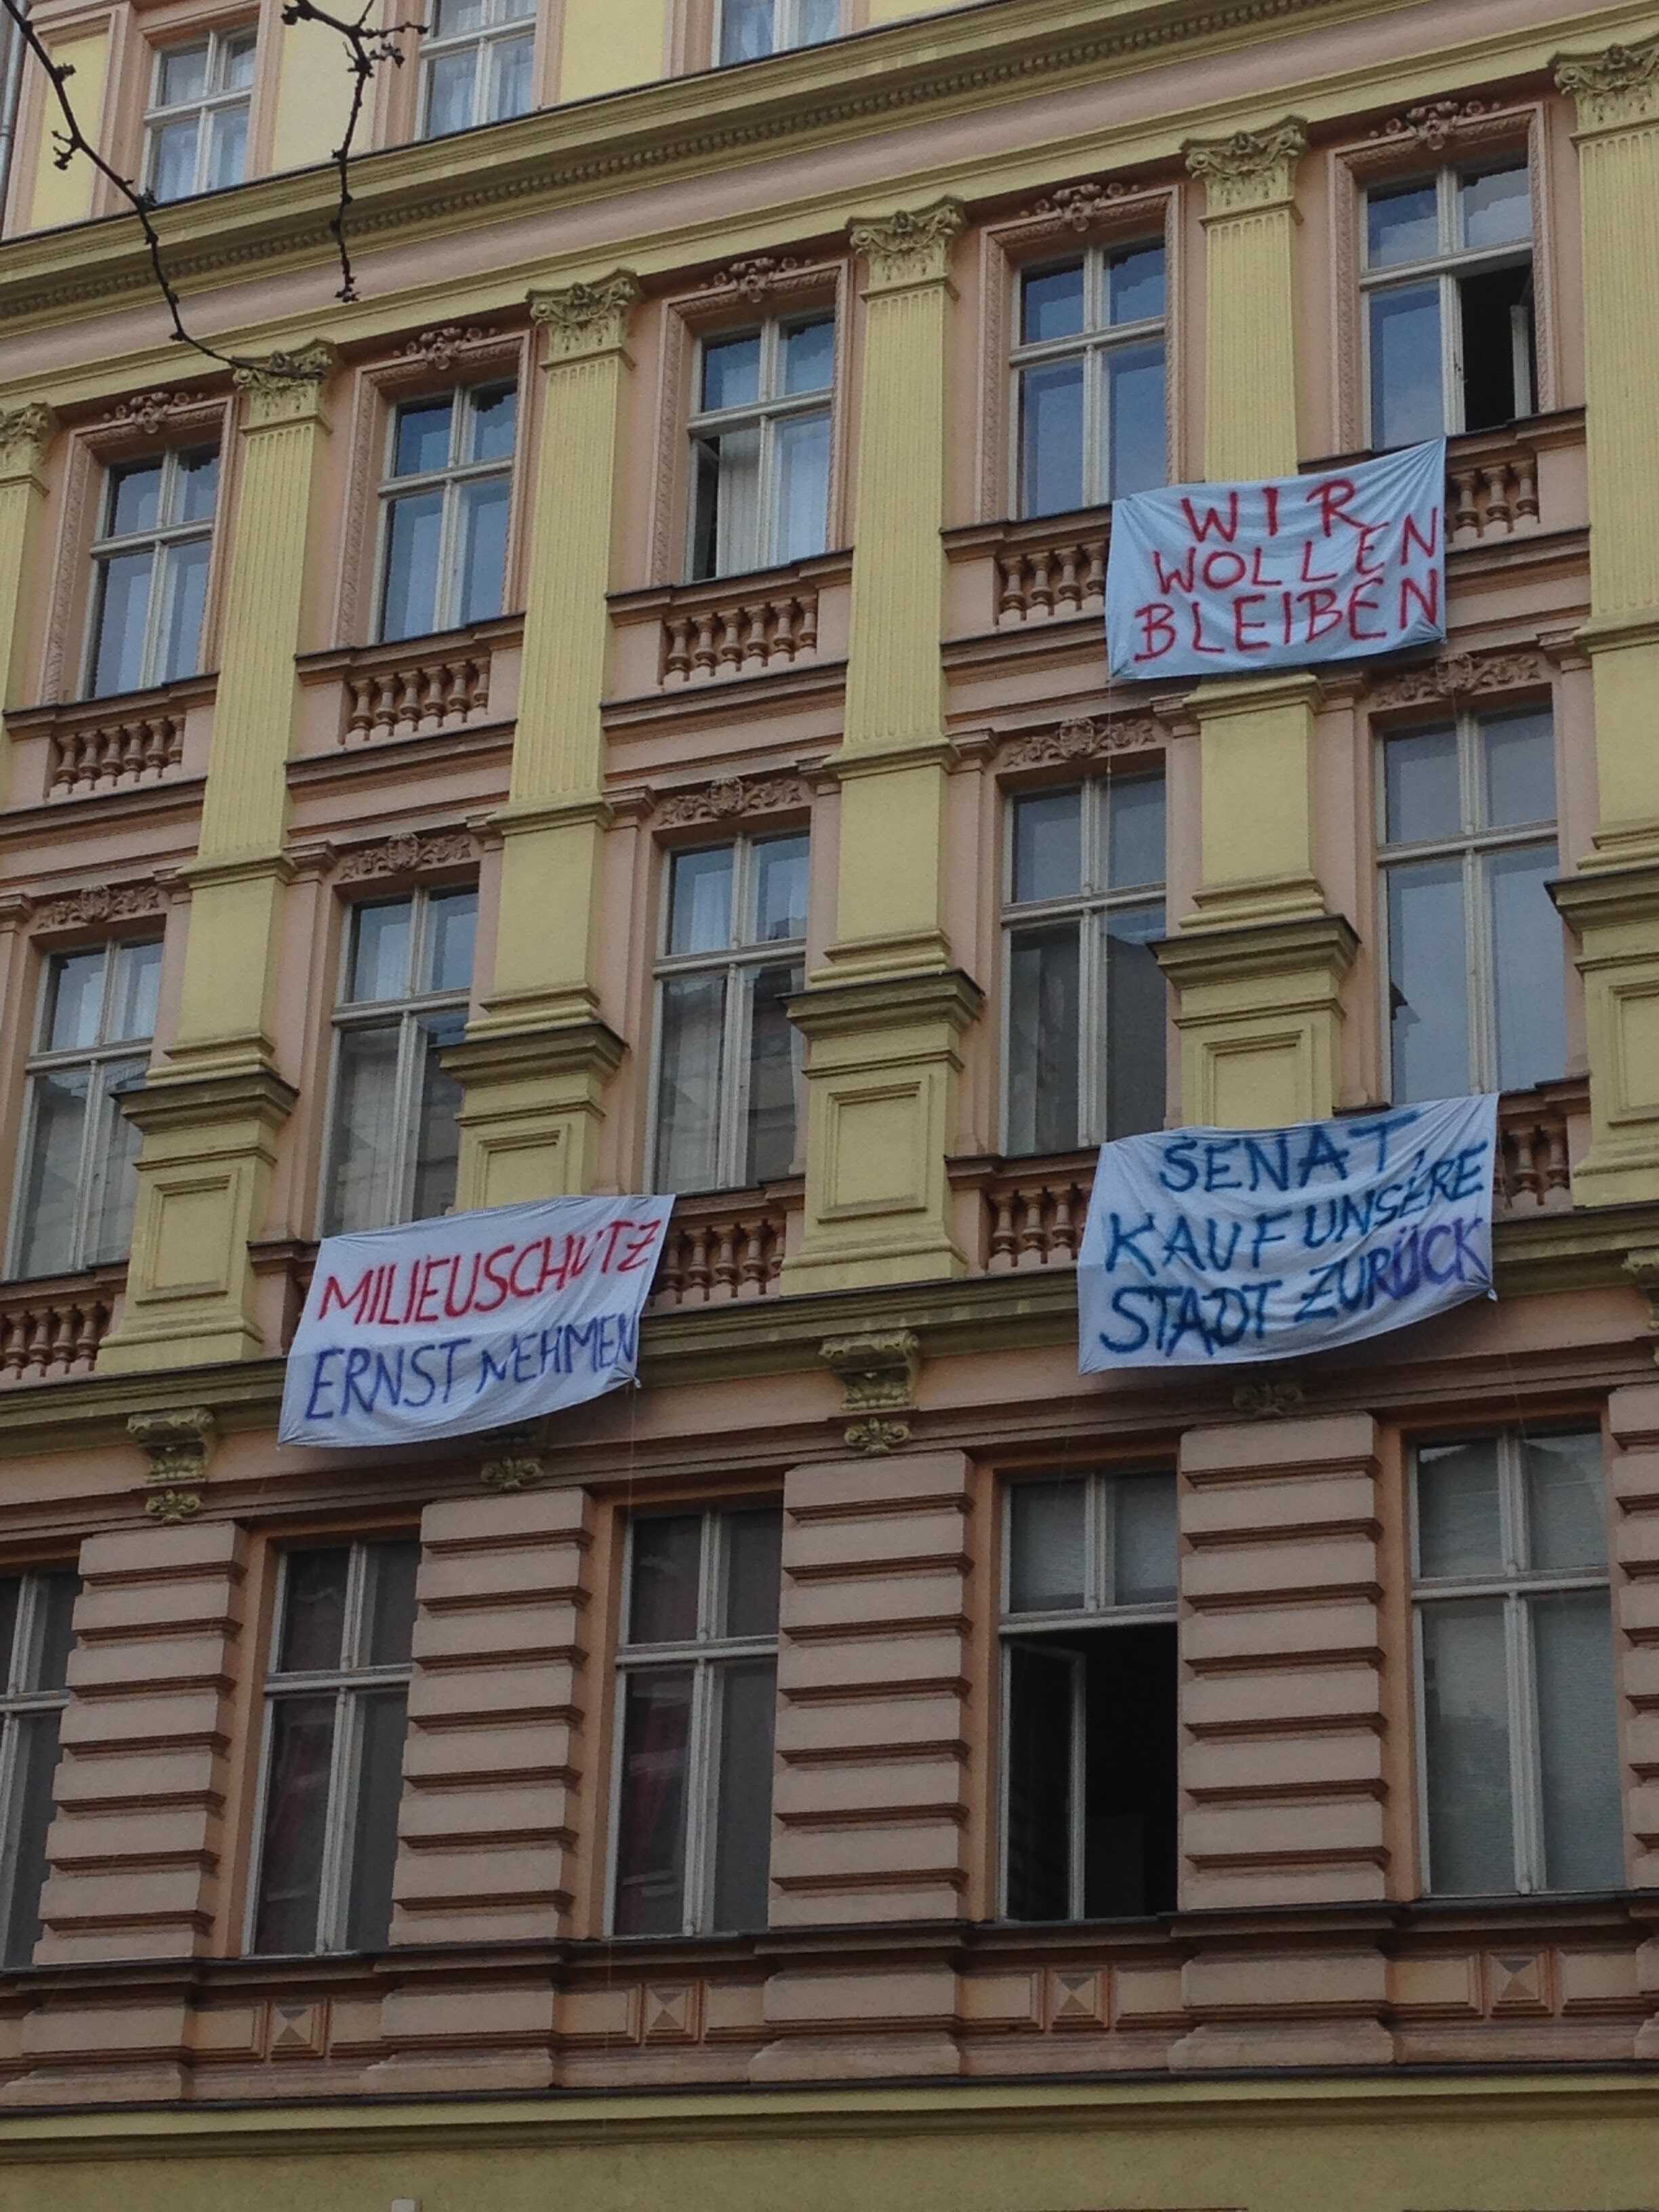 WIR
WOLLEN
BLEIBEN
MILIEUSCHUTZ
ERNST NEHMEN
SENAT,
KAUF UNSERE
STADT ZURÜCK